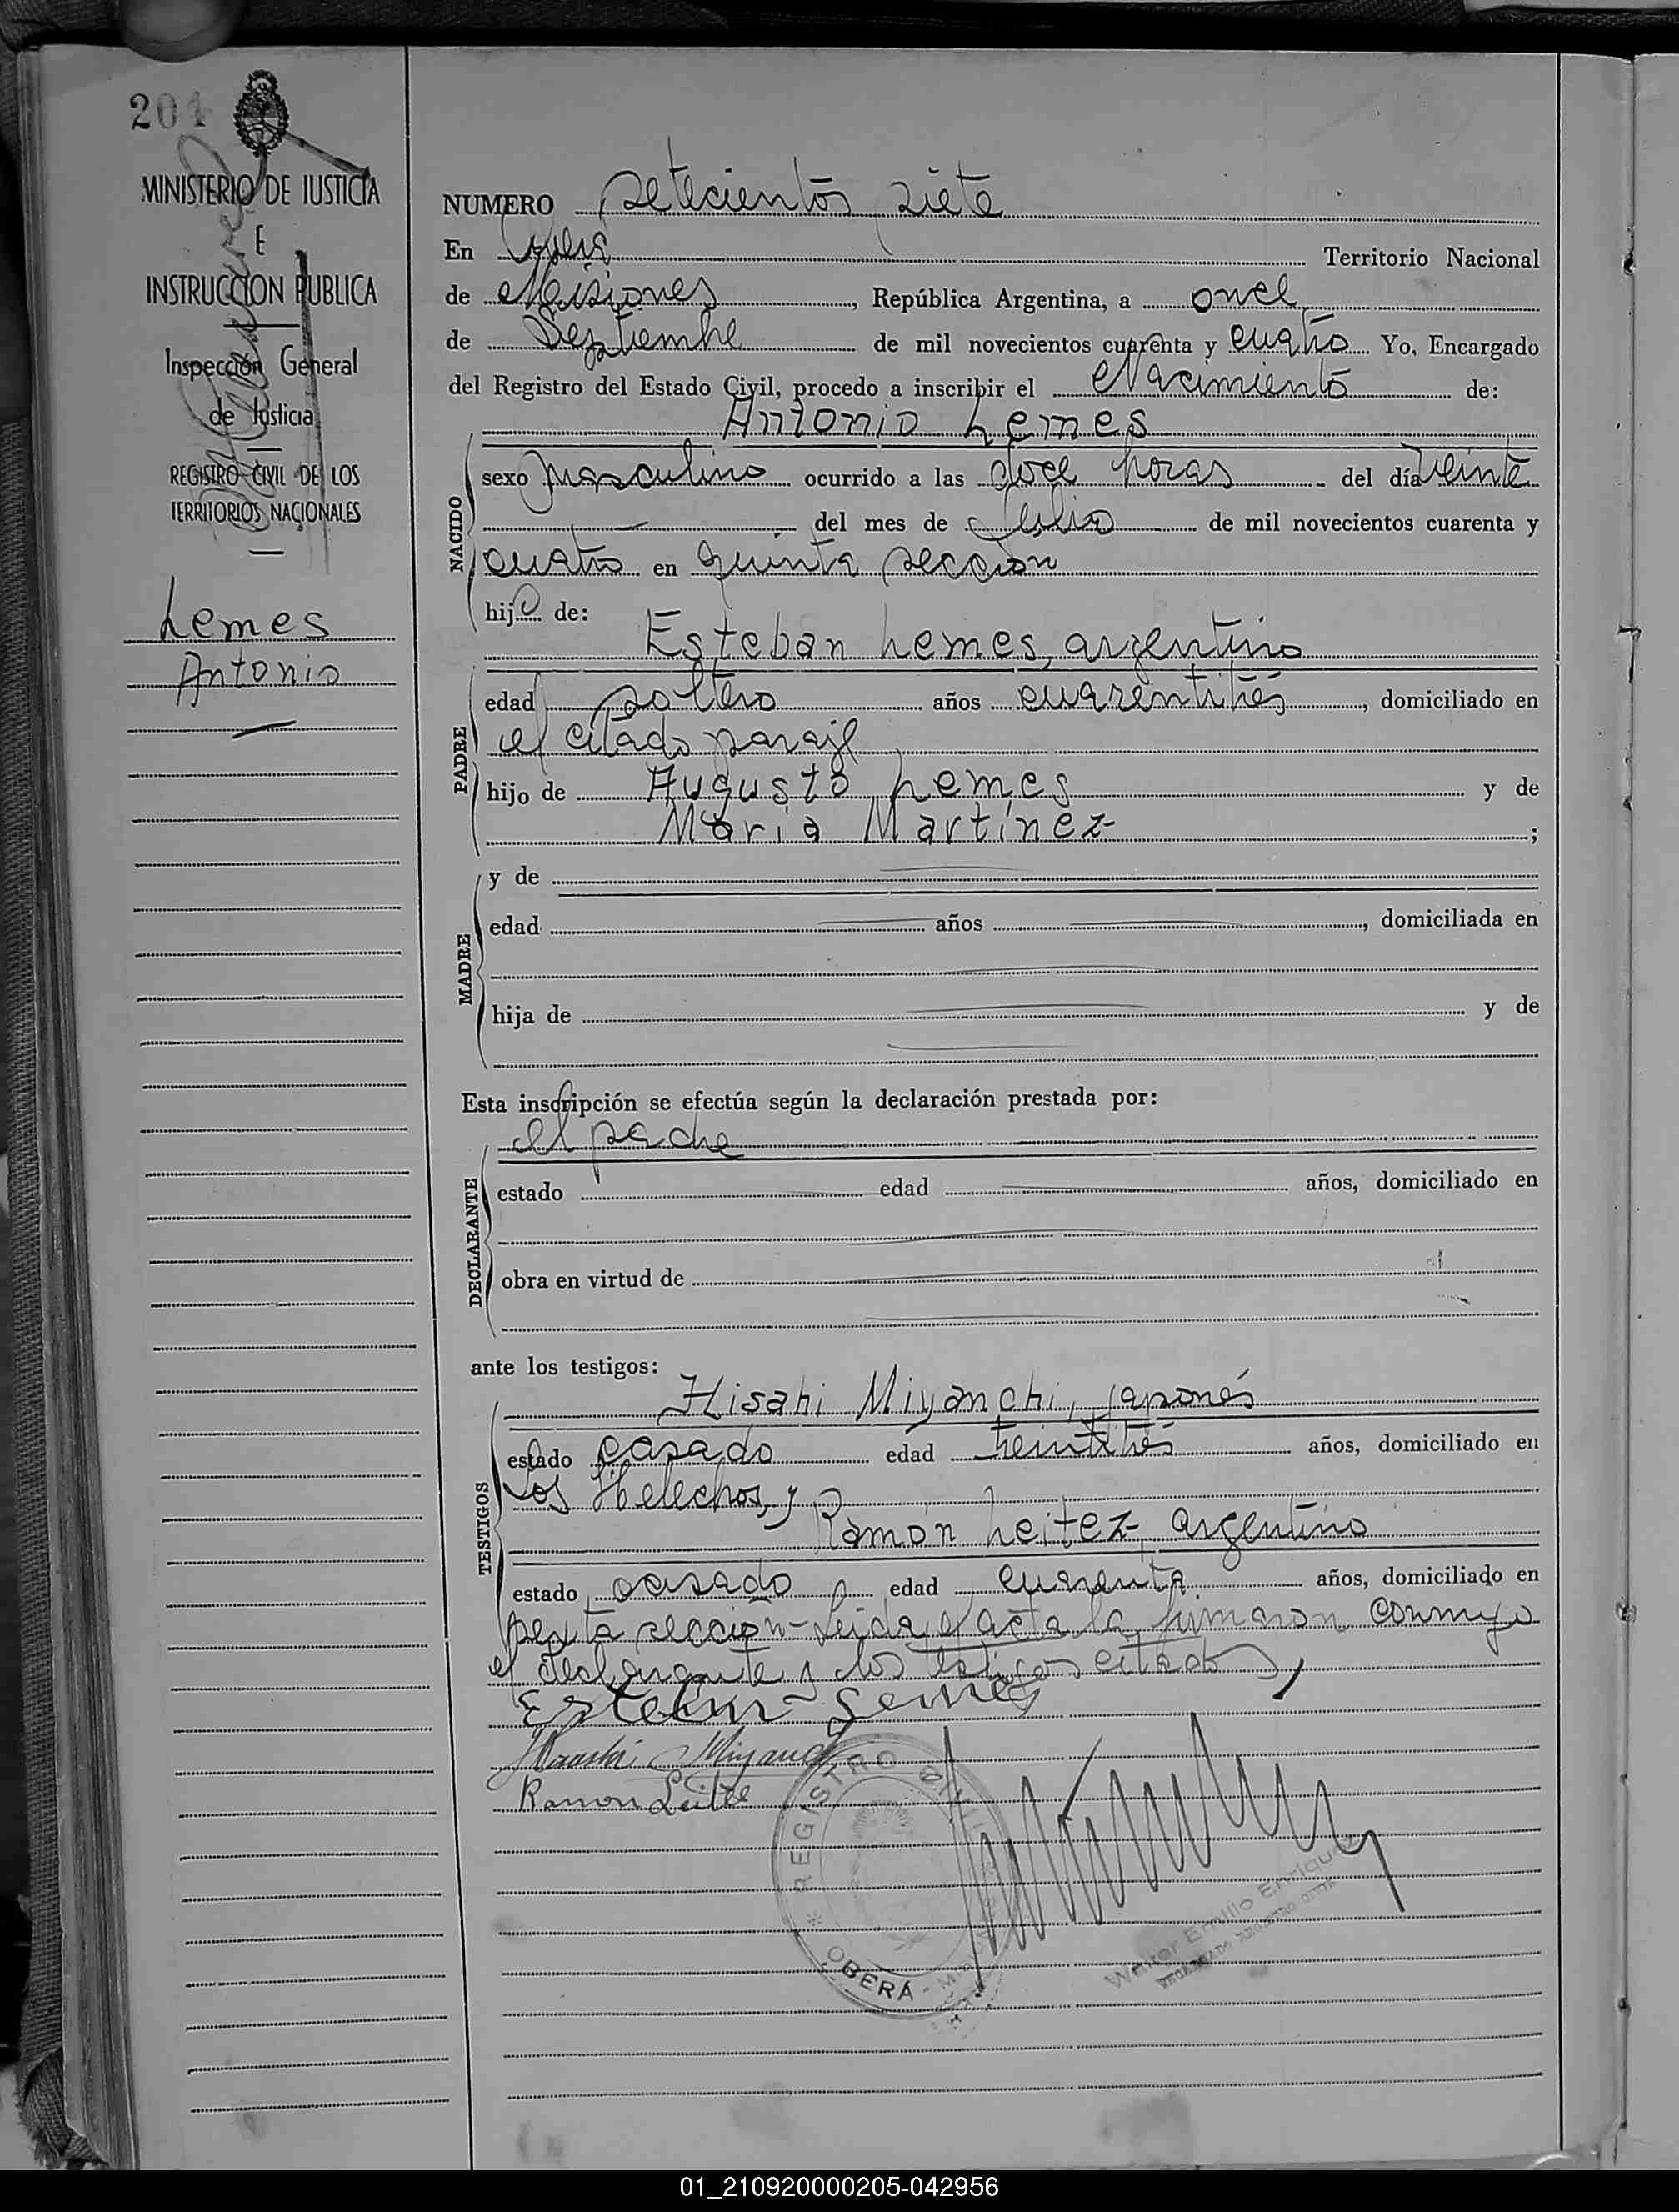 201
MINISTERIO DE JUSTICIA
E
INSTRUCCION PUBLICA
Inspección General
de Justicia
REGISTRO CIVIL DE LOS
TERRITORIOS NACIONALES
Lemes
Antonio
NUMERO setecientos siete
En Oberá Territorio Nacional
de Misiones, República Argentina, a once
de Septiembre de mil novecientos cuarenta y cuatro Yo, Encargado
del Registro del Estado Civil, procedo a inscribir el Nacimiento de:
Antonio Lemes
NACIDO
sexo masculino ocurrido a las doce horas del día veinte
del mes de Julio de mil novecientos cuarenta y
cuatro en quinta sección
hijo de:
Esteban Lemes, argentino
PADRE
edad soltero años cuarentitrés, domiciliado en
el citado paraje
hijo de Augusto Lemes y de
María Martínez ;
MADRE
y de
edad años , domiciliada en
hija de y de
Esta inscripción se efectúa según la declaración prestada por:
el padre
DECLARANTE
estado edad años, domiciliado en
obra en virtud de
ante los testigos:
Hisahi Miyanchi, japonés
TESTIGOS
estado casado edad treintitrés años, domiciliado en
Los Helechos, y
Ramón Leitez, argentino
estado casado edad cuarenta años, domiciliado en
sexta sección - Leida el acta la firmaron conmigo
el declarante y los testigos citados,
Esteban Lemes
Miyauchi
Ramon Leites
REGISTRO CIVIL
OBERÁ
Walter Emilio Enrique
ENCARGADO REGISTRO CIVIL
01_210920000205-042956